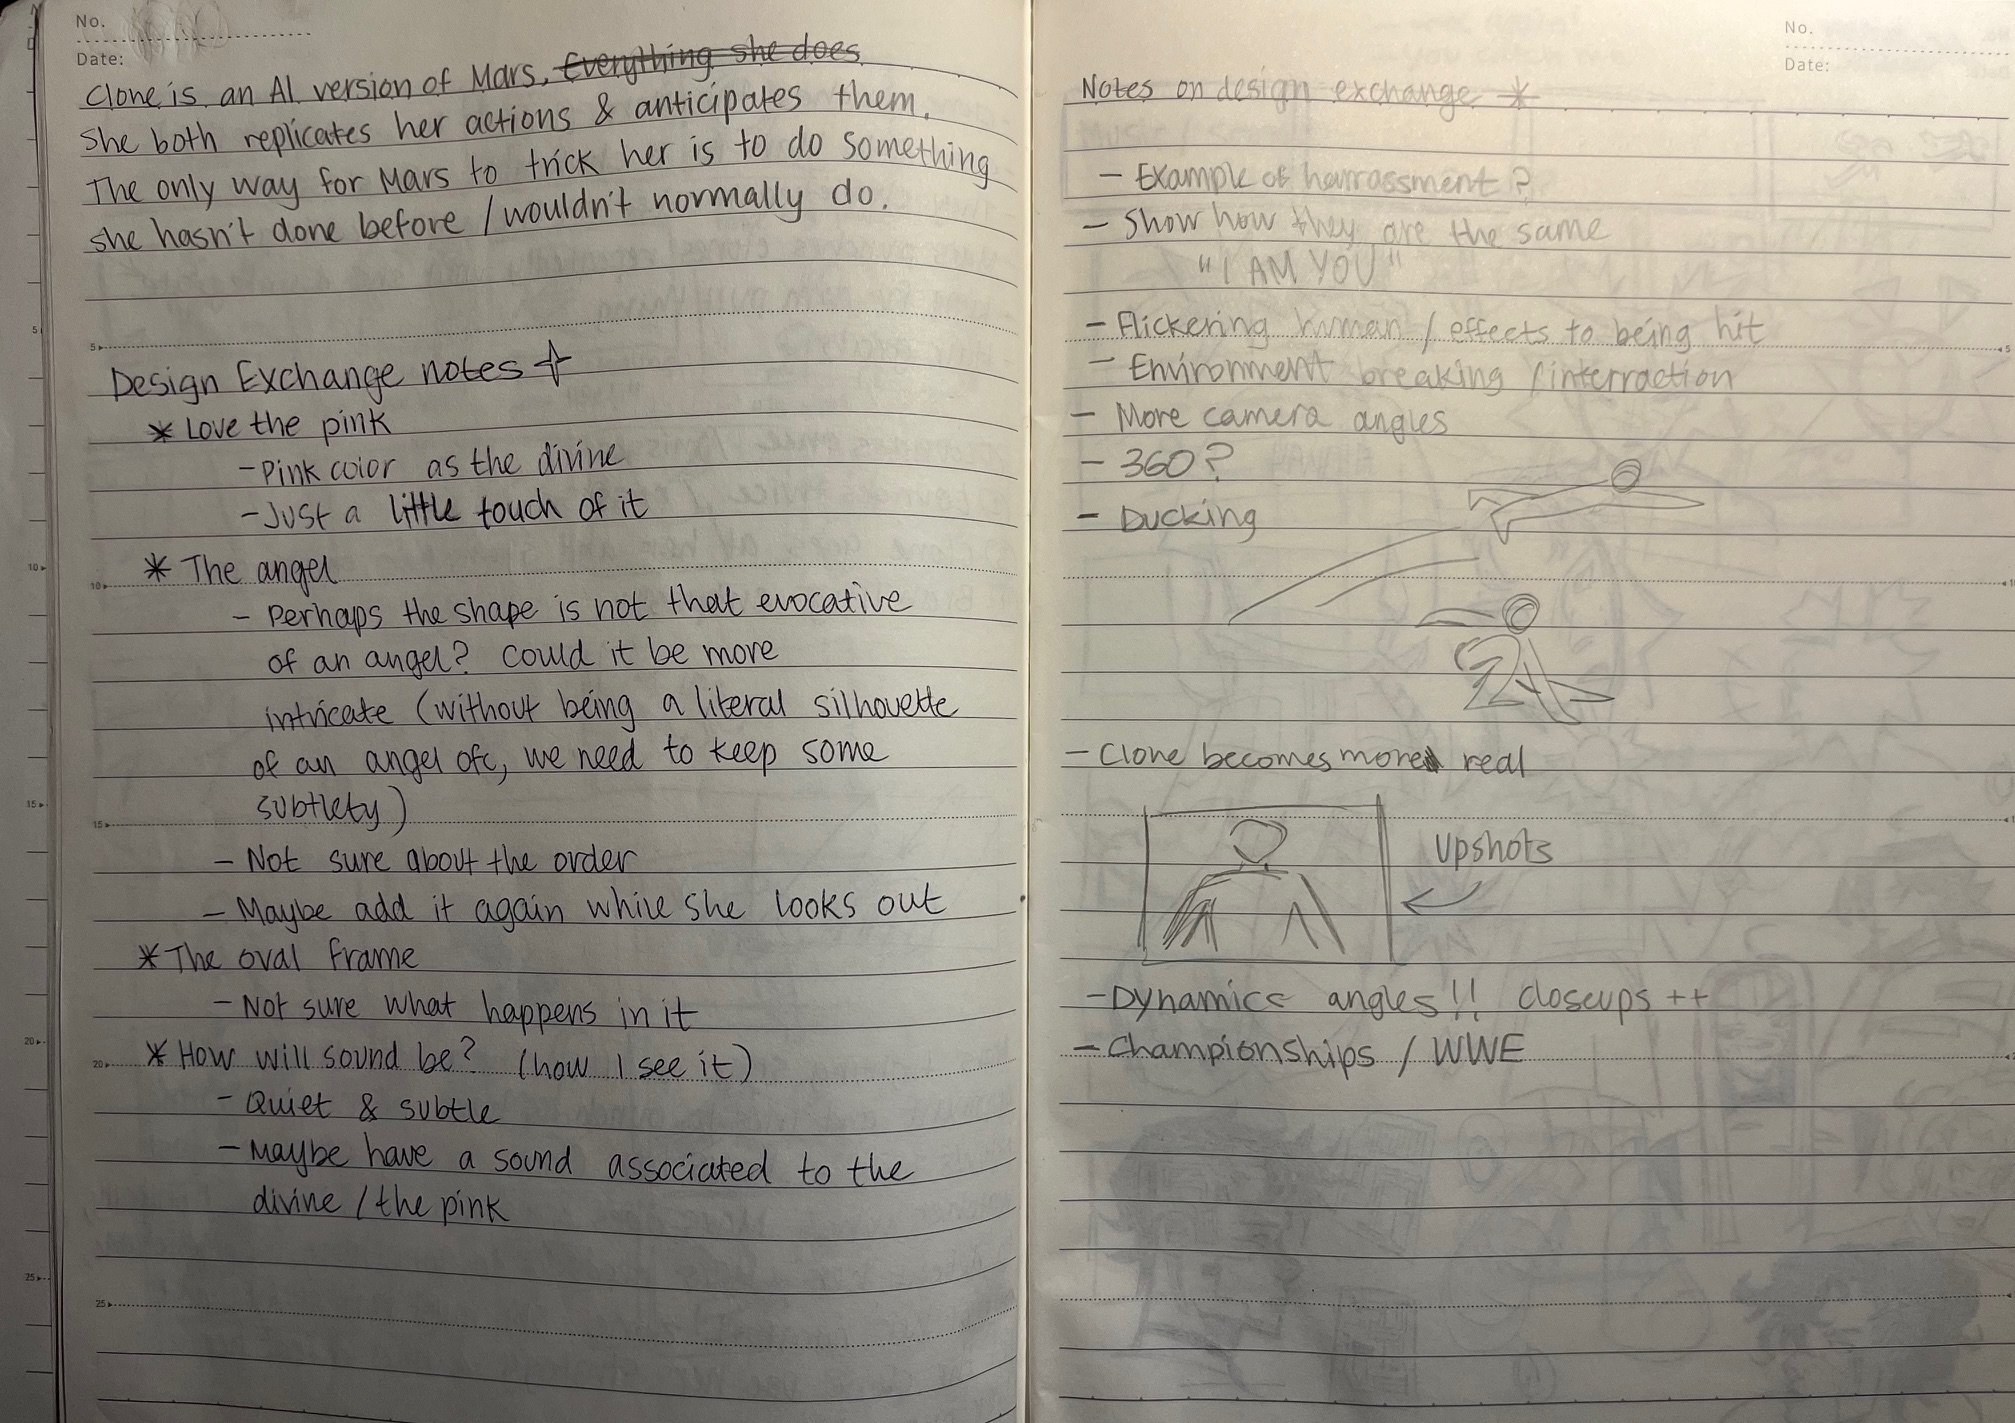 No.
Date:
Clone is an AI version of Mars. Everything she does
She both replicates her actions & anticipates them.
The only way for Mars to trick her is to do something
she hasn't done before / wouldn't normally do.
Design Exchange notes
* Love the pink
- Pink color as the divine
- Just a little touch of it
* The angel
- Perhaps the shape is not that evocative
of an angel? Could it be more
intricate (without being a literal silhouette
of an angel ofc, we need to keep some
subtlety)
- Not sure about the order
- Maybe add it again while she looks out
* The oval frame
- Not sure what happens in it
* How will sound be? (how I see it)
- Quiet & subtle
- Maybe have a sound associated to the
divine / the pink
5
10
15
20
25
5
10
15
20
25
No.
Date:
Notes on design exchange *
- Example of harrassment?
- Show how they are the same
"I AM YOU"
- Flickering human / effects to being hit
- Environment breaking / interraction
- More camera angles
- 360?
- Ducking
- Clone becomes more real
Upshots
- Dynamics angles!! closeups ++
- Championships / WWE